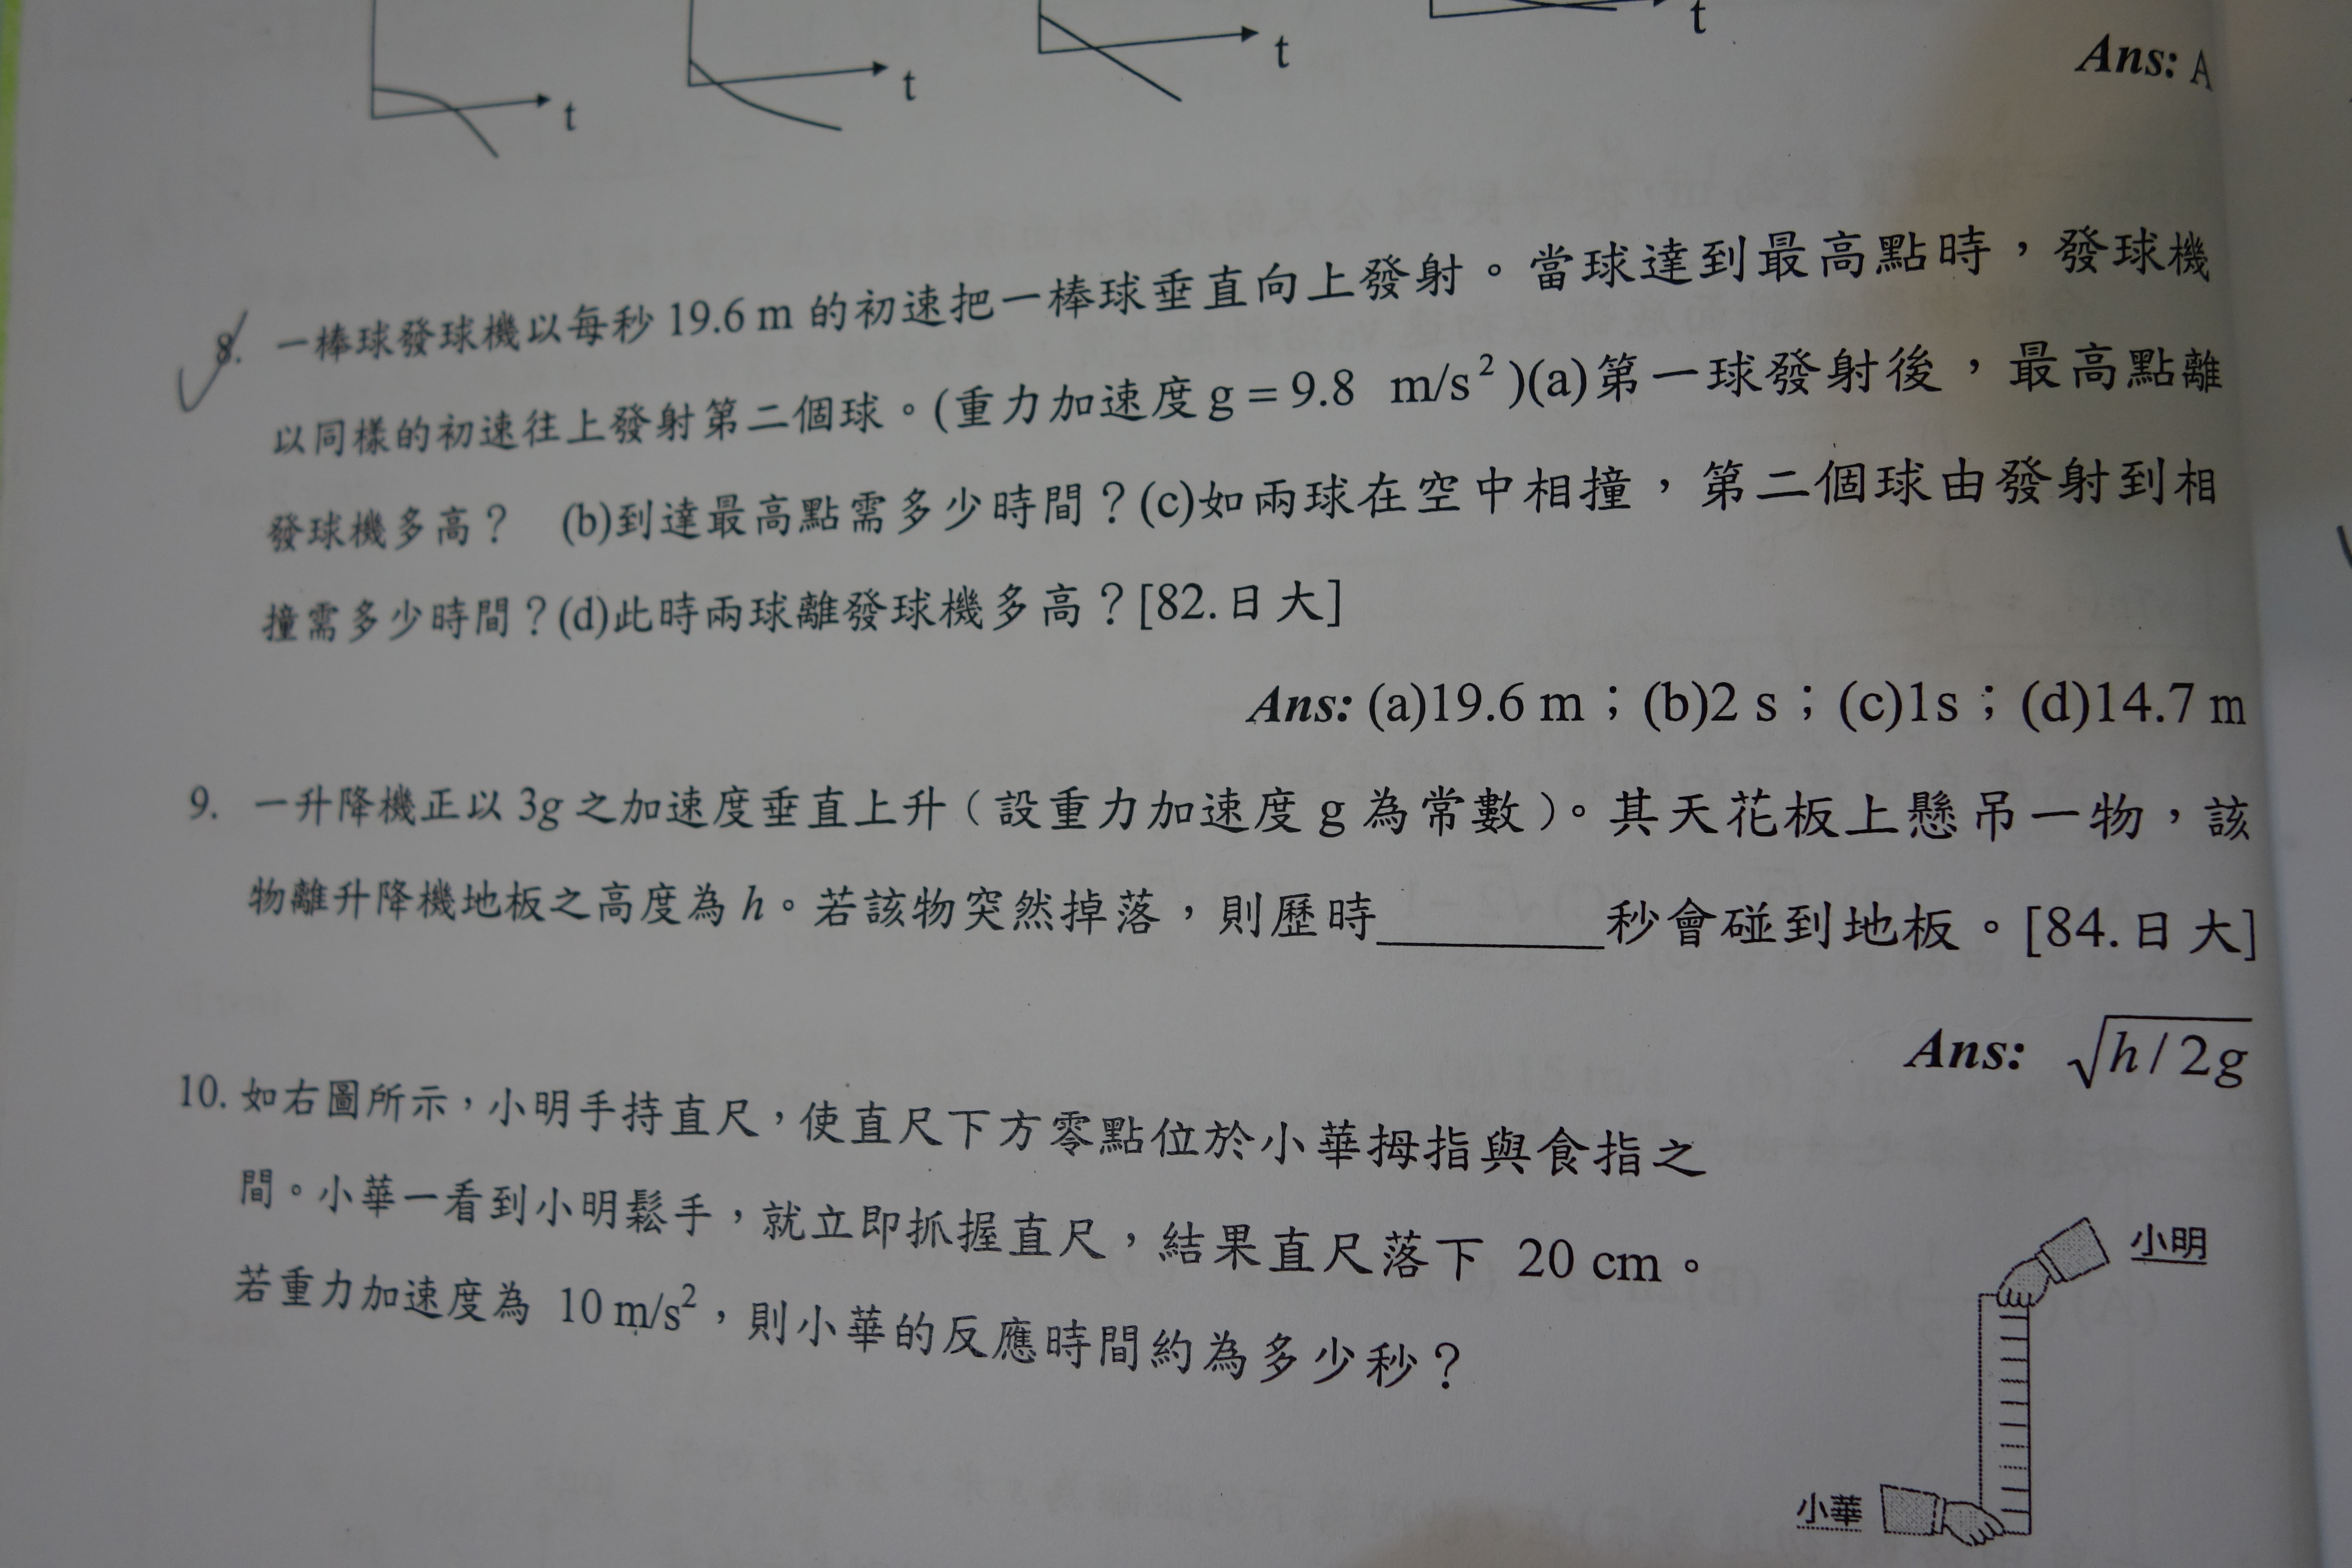 t
t
t
t
Ans: A
8. 一棒球發球機以每秒 19.6 m 的初速把一棒球垂直向上發射。當球達到最高點時，發球機
以同樣的初速往上發射第二個球。(重力加速度 g = 9.8 m/s²)(a)第一球發射後，最高點離
發球機多高？ (b)到達最高點需多少時間？(c)如兩球在空中相撞，第二個球由發射到相
撞需多少時間？(d)此時兩球離發球機多高？[82.日大]
Ans: (a)19.6 m；(b)2 s；(c)1s；(d)14.7 m
9. 一升降機正以 3g 之加速度垂直上升（設重力加速度 g 為常數）。其天花板上懸吊一物，該
物離升降機地板之高度為 h。若該物突然掉落，則歷時________秒會碰到地板。[84.日大]
Ans: √h/2g
10. 如右圖所示，小明手持直尺，使直尺下方零點位於小華拇指與食指之
間。小華一看到小明鬆手，就立即抓握直尺，結果直尺落下 20 cm。
若重力加速度為 10 m/s²，則小華的反應時間約為多少秒？
小明
小華